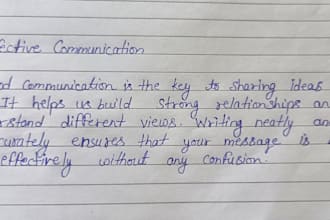 ective Communication
d communication is the key to sharing ideas
It helps us build strong relationships an
rstand different views. Writing neatly an
curately ensures that your message is
effectively without any confusion.